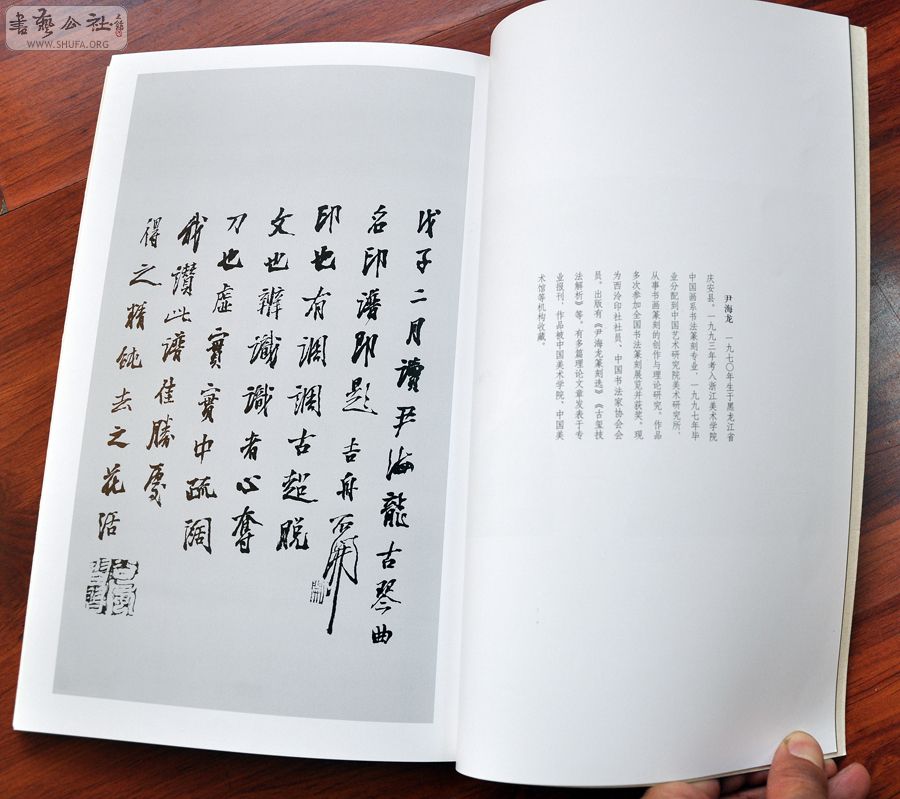 書藝公社
WWW.SHUFA.ORG
尹海龙 一九七〇年生于黑龙江省
庆安县。一九九三年考入浙江美术学院
中国画系书法篆刻专业，一九九七年毕
业分配到中国艺术研究院美术研究所，
从事书画篆刻的创作与理论研究。作品
多次参加全国书法篆刻展览并获奖。现
为西泠印社社员、中国书法家协会会
员。出版有《尹海龙篆刻选》《古玺技
法解析》等。有多篇理论文章发表于专
业报刊，作品被中国美术学院、中国美
术馆等机构收藏。
戊子二月讀尹海龍古琴曲
名印譜即題 吉舟石開
印也有調調古超脱
文也辨識識者心奪
刀也虛實實中疏闊
我讚此譜佳勝處
得之精純去之花活